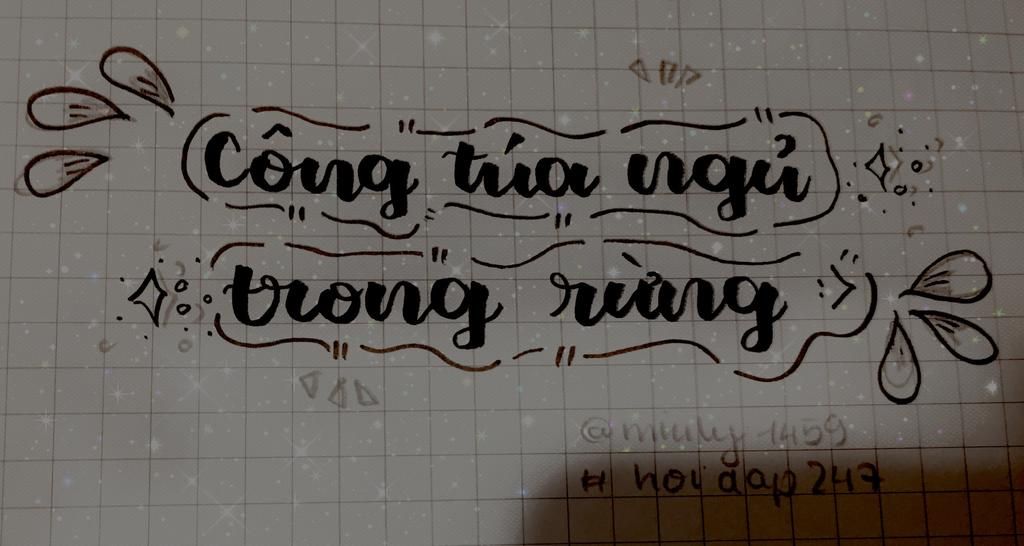 Công túa ngủ
trong rừng :>
@miuly1459
# hoi dap 247